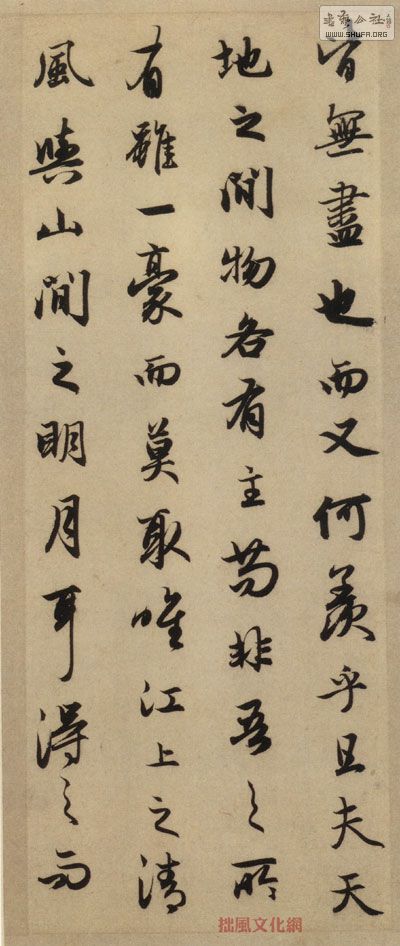 皆無盡也而又何羨乎且夫天
地之間物各有主苟非吾之所
有雖一豪而莫取唯江上之清
風與山間之明月耳得之而
書法公社
www.SHUFA.ORG
拙風文化網